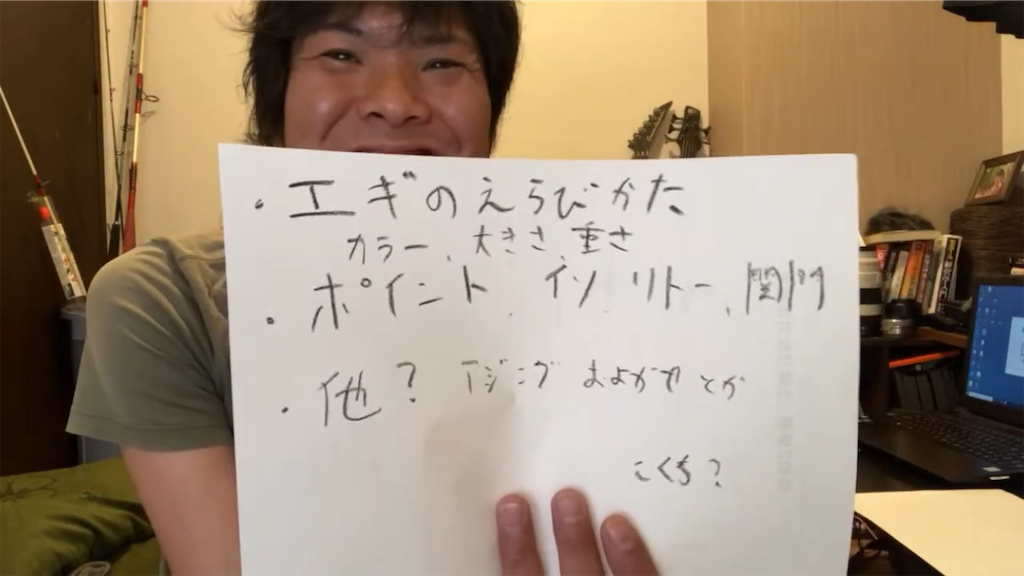 ・エギのえらびかた
カラー、大きさ、重さ
・ポイント、イソ、リトー、関門
・他？ アジング およがせ とか
こくち？